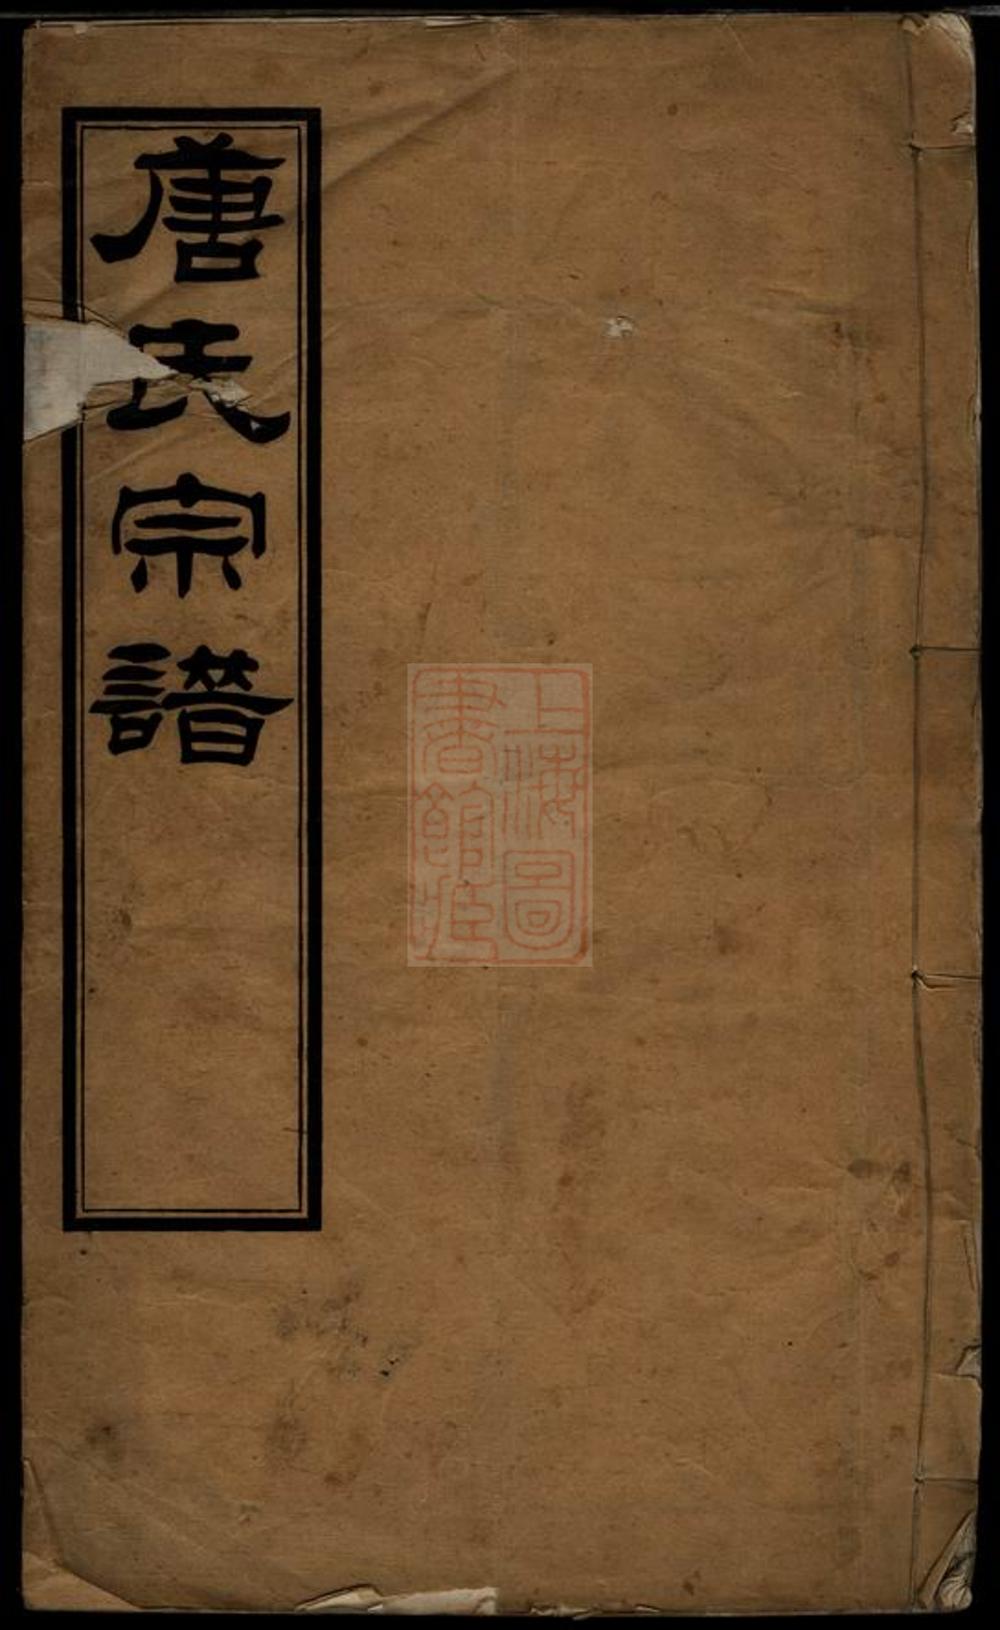 唐氏宗譜
上海圖
書館藏